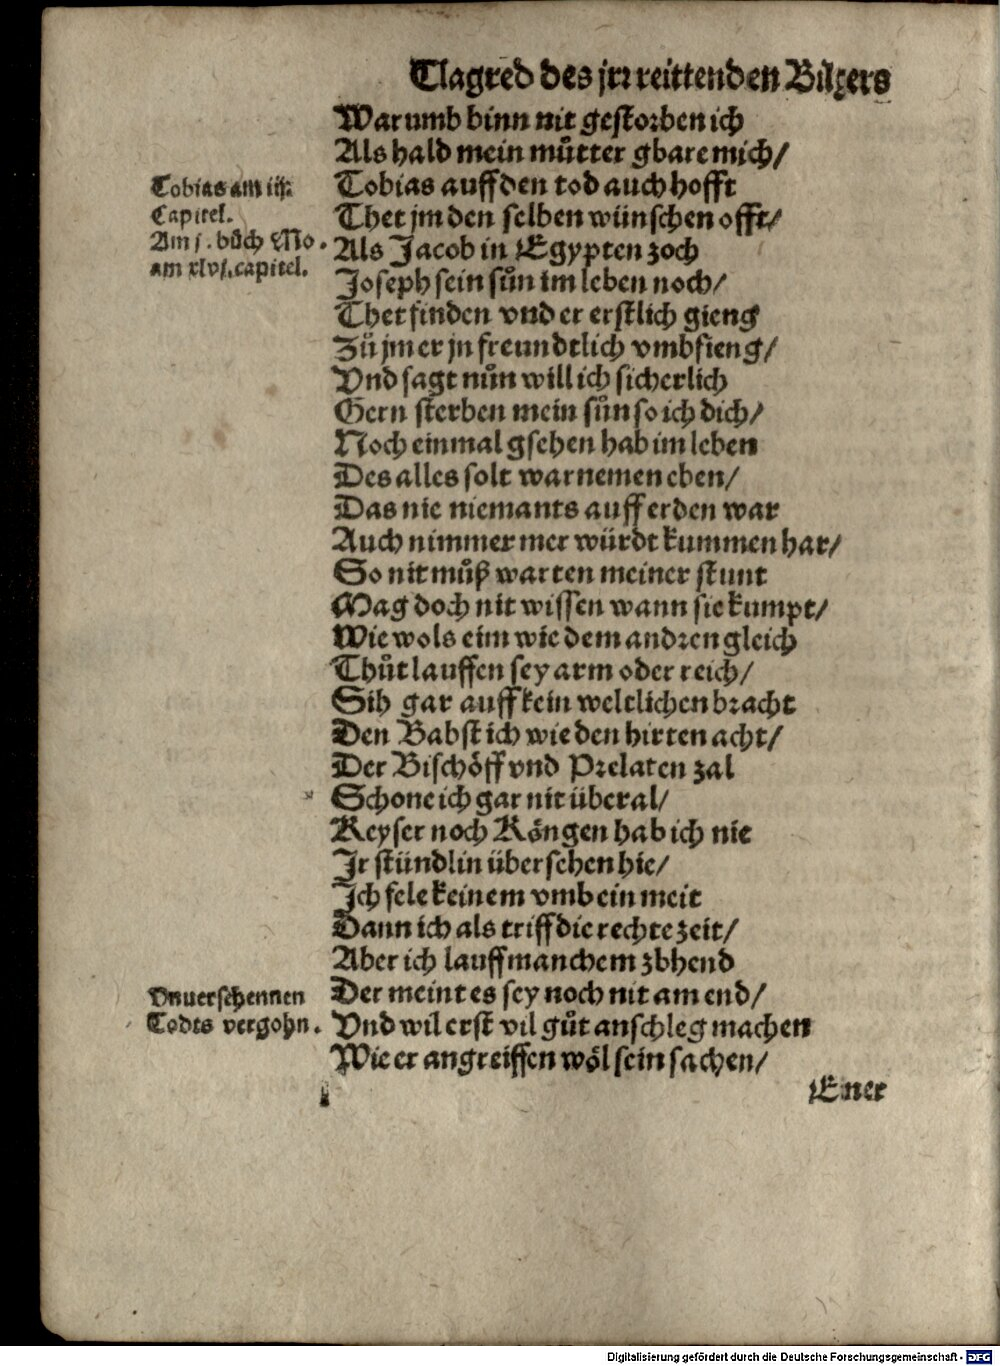 Clagred des jrr reittenden Bilgers
Warumb binn nit gestorben ich
Als bald mein můtter gbare mich/
Tobias am iij.
Capitel.
Tobias auff den tod auch hofft
Thet jm den selben wünschen offt/
Am j. bůch Mo.
am xlvj. capitel.
Als Jacob in Egypten zoch
Joseph sein sůn im leben noch/
Thet finden vnd er erstlich gieng
Zů jm er jn freundtlich vmbfieng/
Vnd sagt nůn will ich sicherlich
Gern sterben mein sůn so ich dich/
Noch einmal gsehen hab im leben
Des alles solt warnemen eben/
Das nie niemants auff erden war
Auch nimmer mer würdt kummen har/
So nit můß warten meiner stunt
Mag doch nit wissen wann sie kumpt/
Wie wols eim wie dem andren gleich
Thůt lauffen sey arm oder reich/
Sih gar auff kein weltlichen bracht
Den Babst ich wie den hirten acht/
Der Bischöff vnd Prelaten zal
Schone ich gar nit überal/
Keyser noch Köngen hab ich nie
Jr stündlin übersehen hie/
Jch fele keinem vmb ein meit
Dann ich als triff die rechte zeit/
Aber ich lauff manchem zbhend
Vnuersehennen
Todts vergohn.
Der meint es sey noch nit am end/
Vnd wil erst vil gůt anschleg machen
Wie er angreiffen wöl sein sachen/
Einer
Digitalisierung gefördert durch die Deutsche Forschungsgemeinschaft - DFG